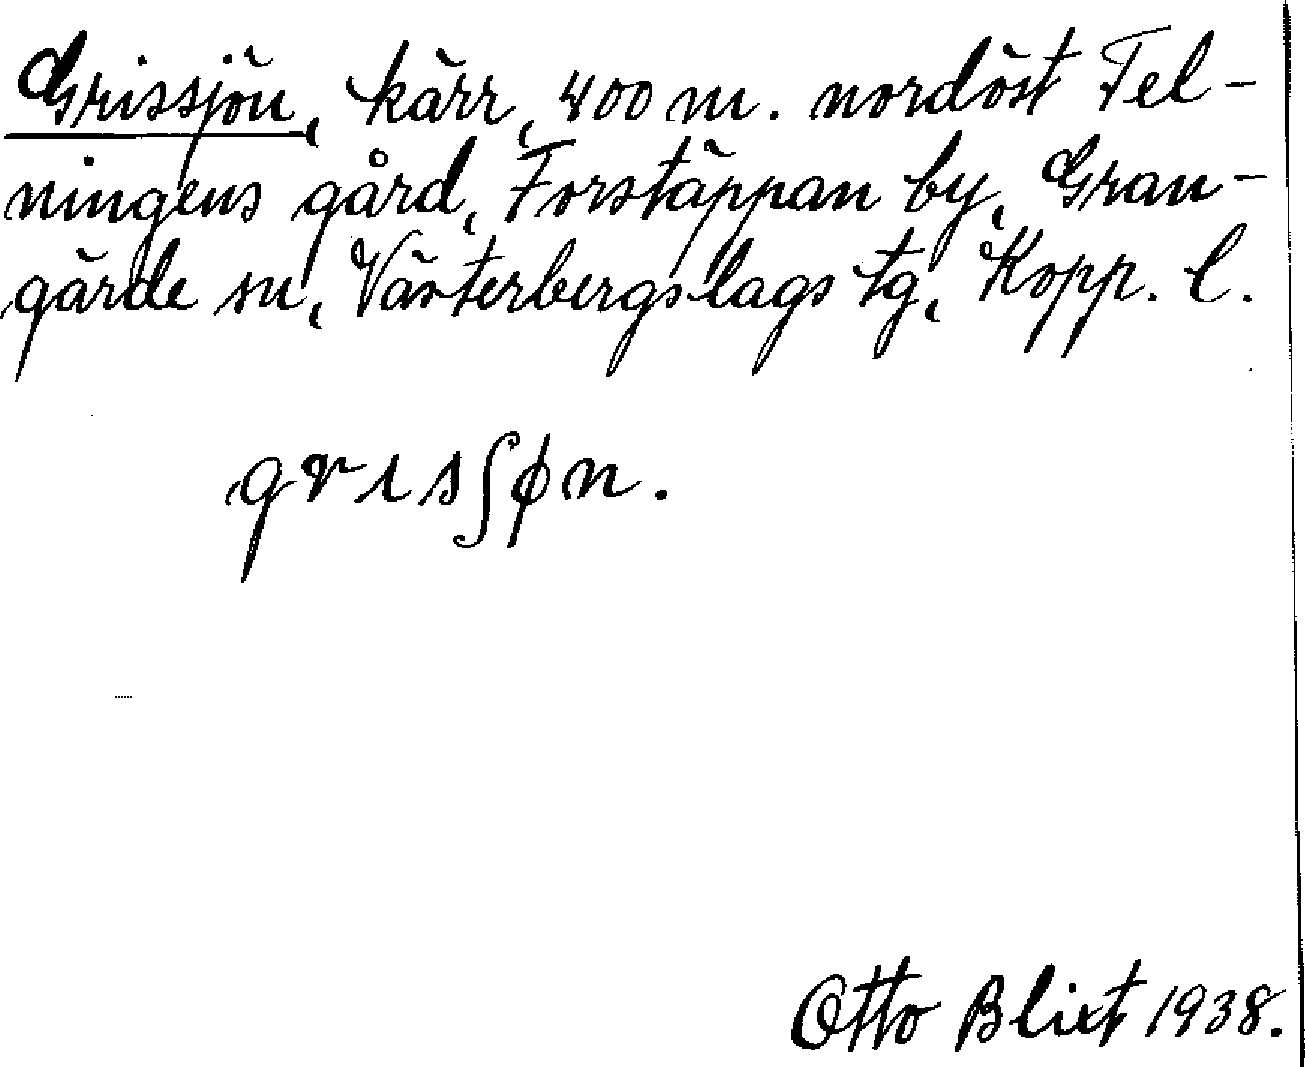 Grissjön, kärr, 400 m. nordöst Tel-
ningens gård, Forstäppan by, Gran-
gärde sn, Västerbergslags tg, Kopp. l.
grısʃɸn.
Otto Blixt 1938.